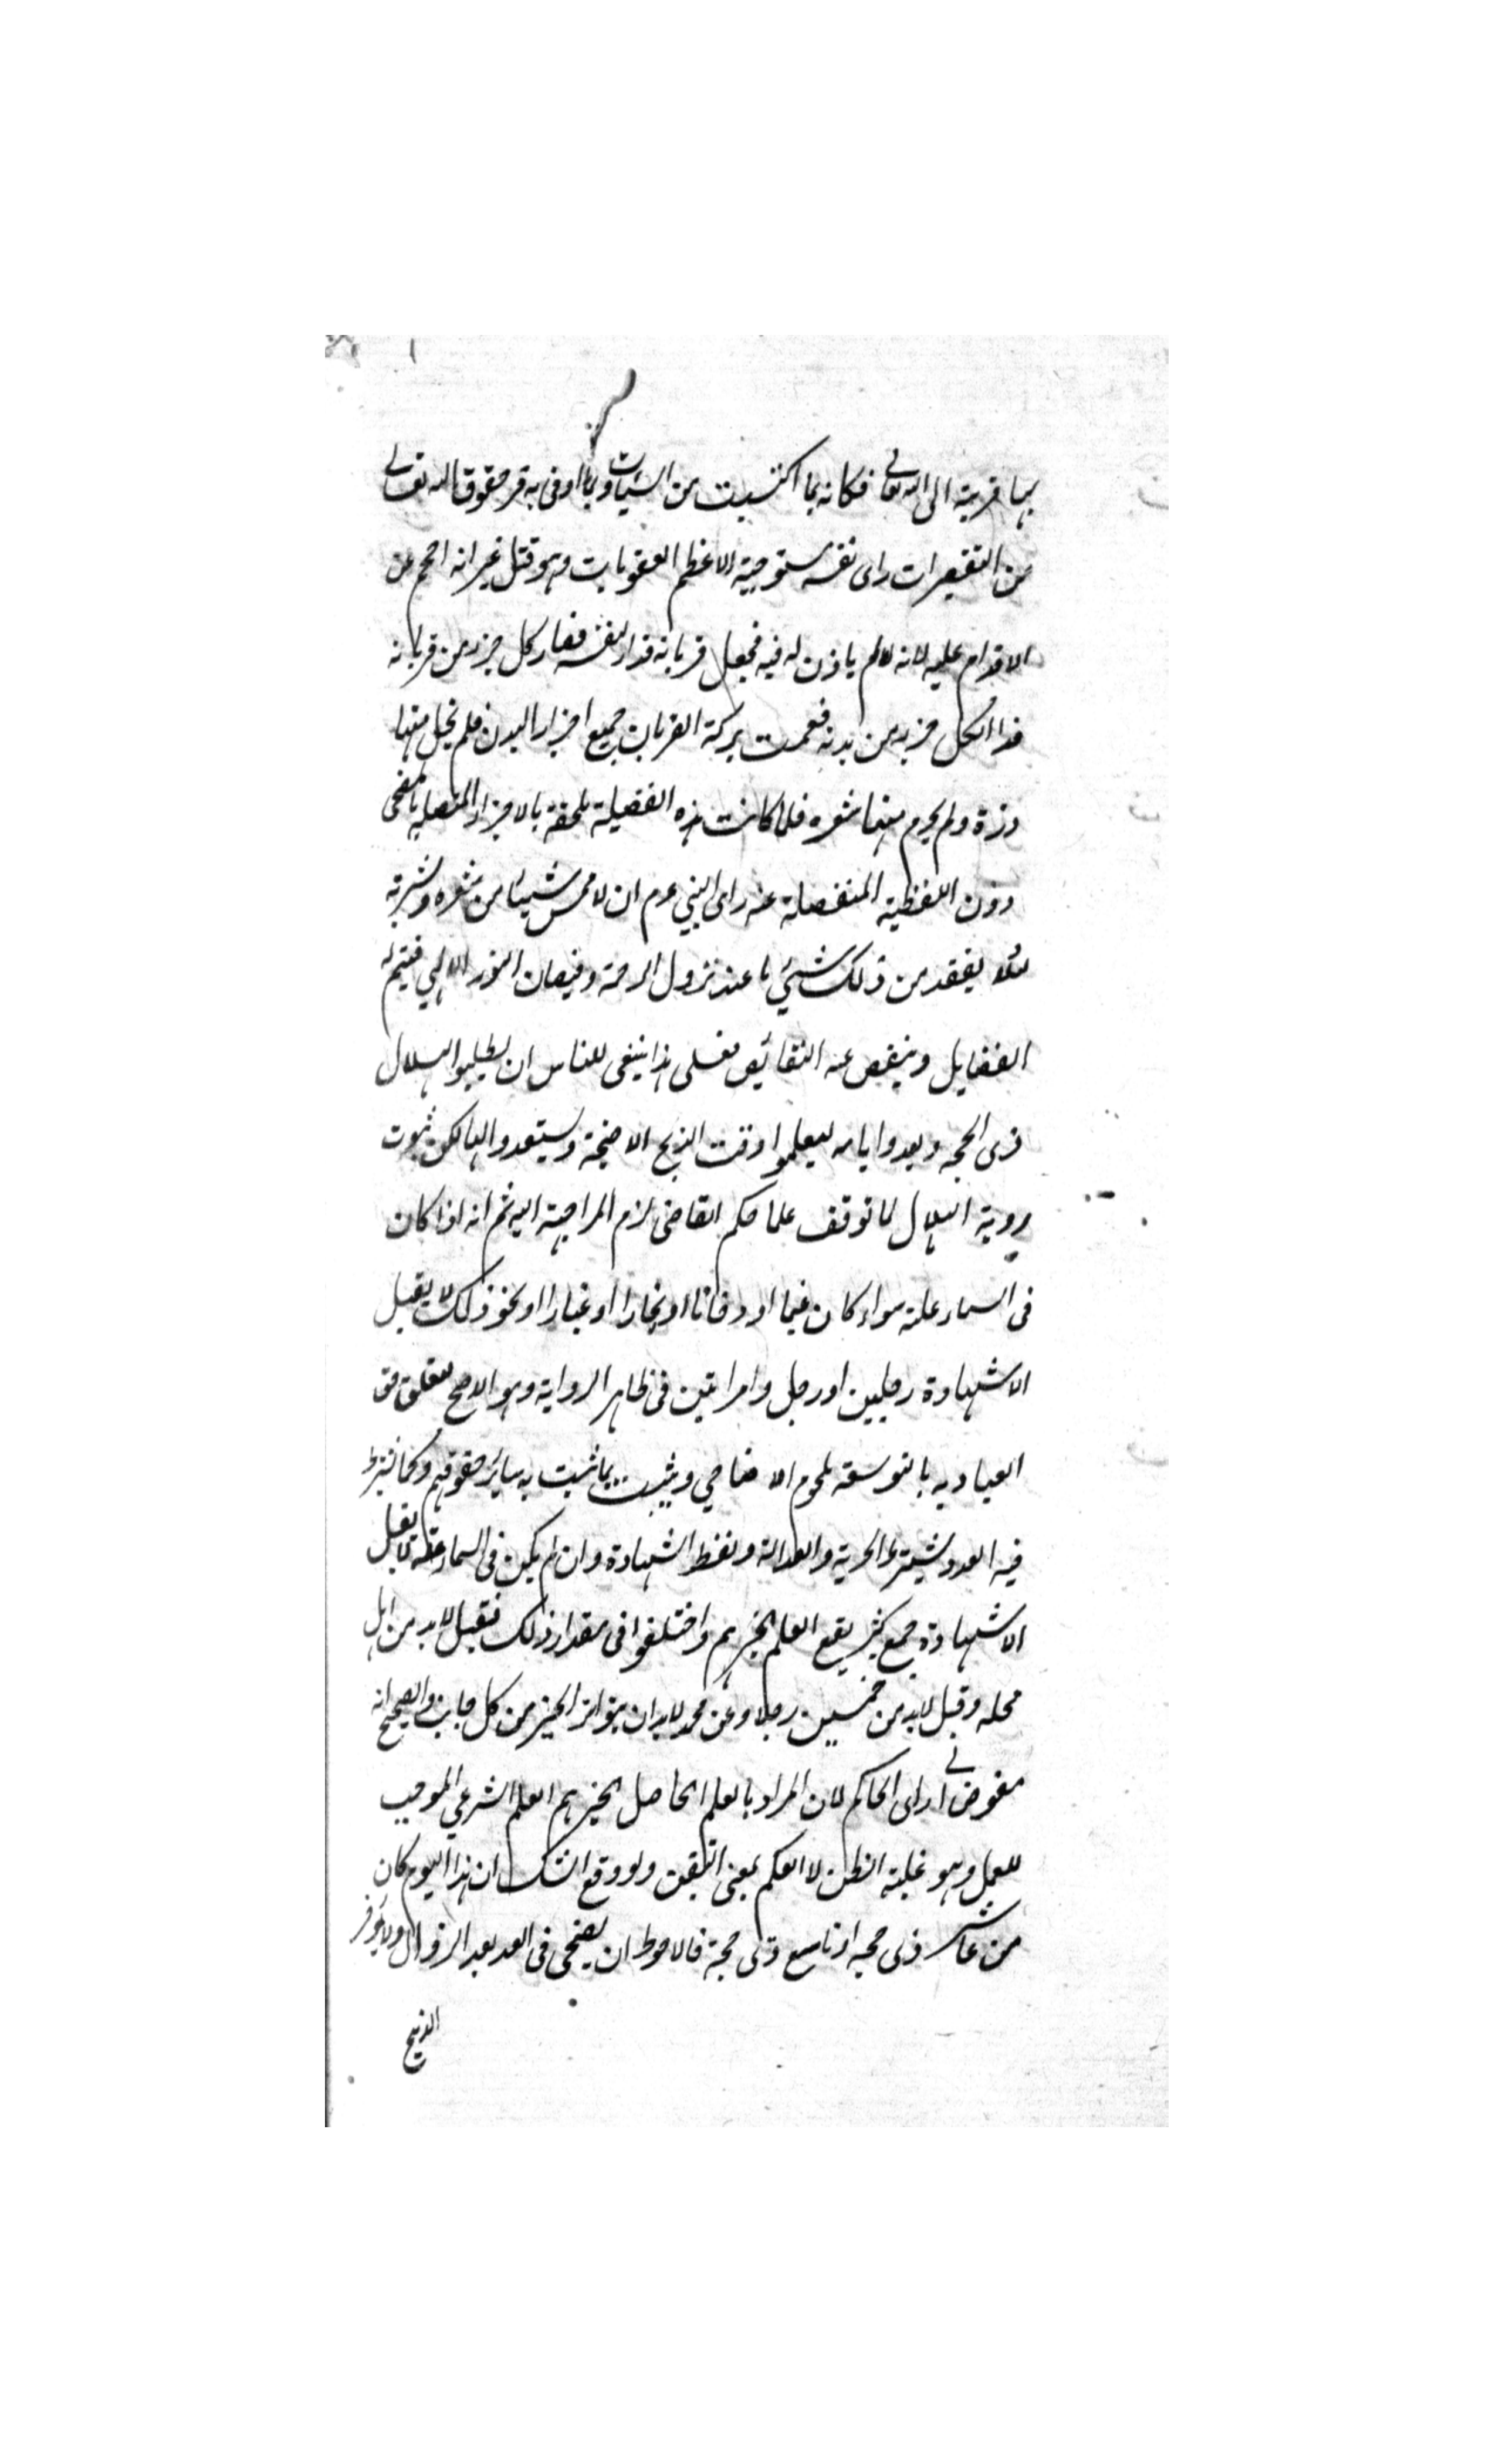 بها قربة الى الله تعالى فكانه بما اكتسبت من السيئات وبما اوفى به فى حقوق الله تعالى
من التقصيرات راى نفسه مستوجبة الاعظم العقوبات وهو قتل غير انه احجم عن
الاقدام عليه لانه لالم ياذن له فيه فجعل قربانه فداء لنفسه فصار كل جزء من قربانه
فداء لكل جزء من بدنه فعمت بركة القربان جميع اجزاء البدن فلم يخل منها
ذرة ولم يحرم منها شعره فلما كانت هذه الفضيلة ملحقة بالاجزاء المتصلة بالمضحى
دون اللفظية المنفصلة عنه راى النبى عم ان لا يمس شيئا من شعره وبشرته
لئلا يفقد من ذلك شئ ما عند نزول الرحمة وفيضان النور الالهى فيتم له
الفضايل وينقص عنه النقائص فعلى هذا ينبغى للناس ان يطلبوا هلال
ذى الحجه ويعدوا ايامه ليعلموا وقت الذبح الاضحية ويستعدوا لها لكن ثبوت
روية الهلال لما توقف علما حكم القاضى لزم المراجعة اليه ثم انه اذا كان
فى السماء علة سواء كان غيما او دخانا او بخارا او غبارا او نحو ذلك لا يقبل
الا شهادة رجلين او رجل وامراتين فى ظاهر الرواية وهو الاصح لتعلق حق
العباد به بالتوسعة بلحوم الاضاحي ويثبت بما ثبت به سائر حقوقهم وكما يشترط
فيه العدد يشترط الحرية والعدالة ولفظ الشهادة وان لم يكن فى السماء علة لا يقبل
الا شهادة جمع كثير يقع العلم بخبرهم واختلفوا فى مقدار ذلك فقيل لابد من اهل
محله وقيل لابد من خمسين رجلا وعن محمد لابد ان يتواتر الخبر من كل جانب والصحيح انه
مفوض الى راى الحاكم لان المراد بالعلم الحاصل بخبرهم العلم الشرعي الموجب
للعمل وهو غلبة الظن لا العلم بمعنى التيقن ولو وقع الشك ان هذا اليوم كان
من عاشر ذى حجه او تاسع ذى حجة فالاحوط ان يضحى فى الغد بعد الزوال ولا يؤخر
الذبح